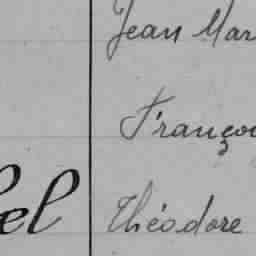 Jean Mar
Françoi
el Théodore